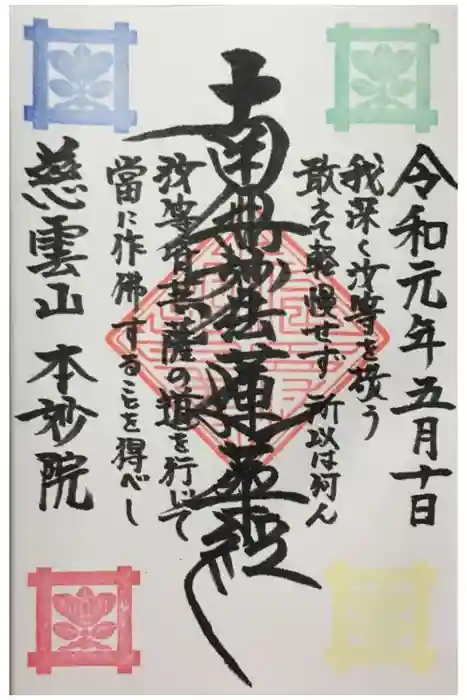 令和元年五月十日
我深く汝等を敬う
敢えて軽慢せず 所以は何ん
南無妙法蓮華経
汝等皆菩薩の道を行じて
當に作佛することを得べし
慈雲山 本妙院